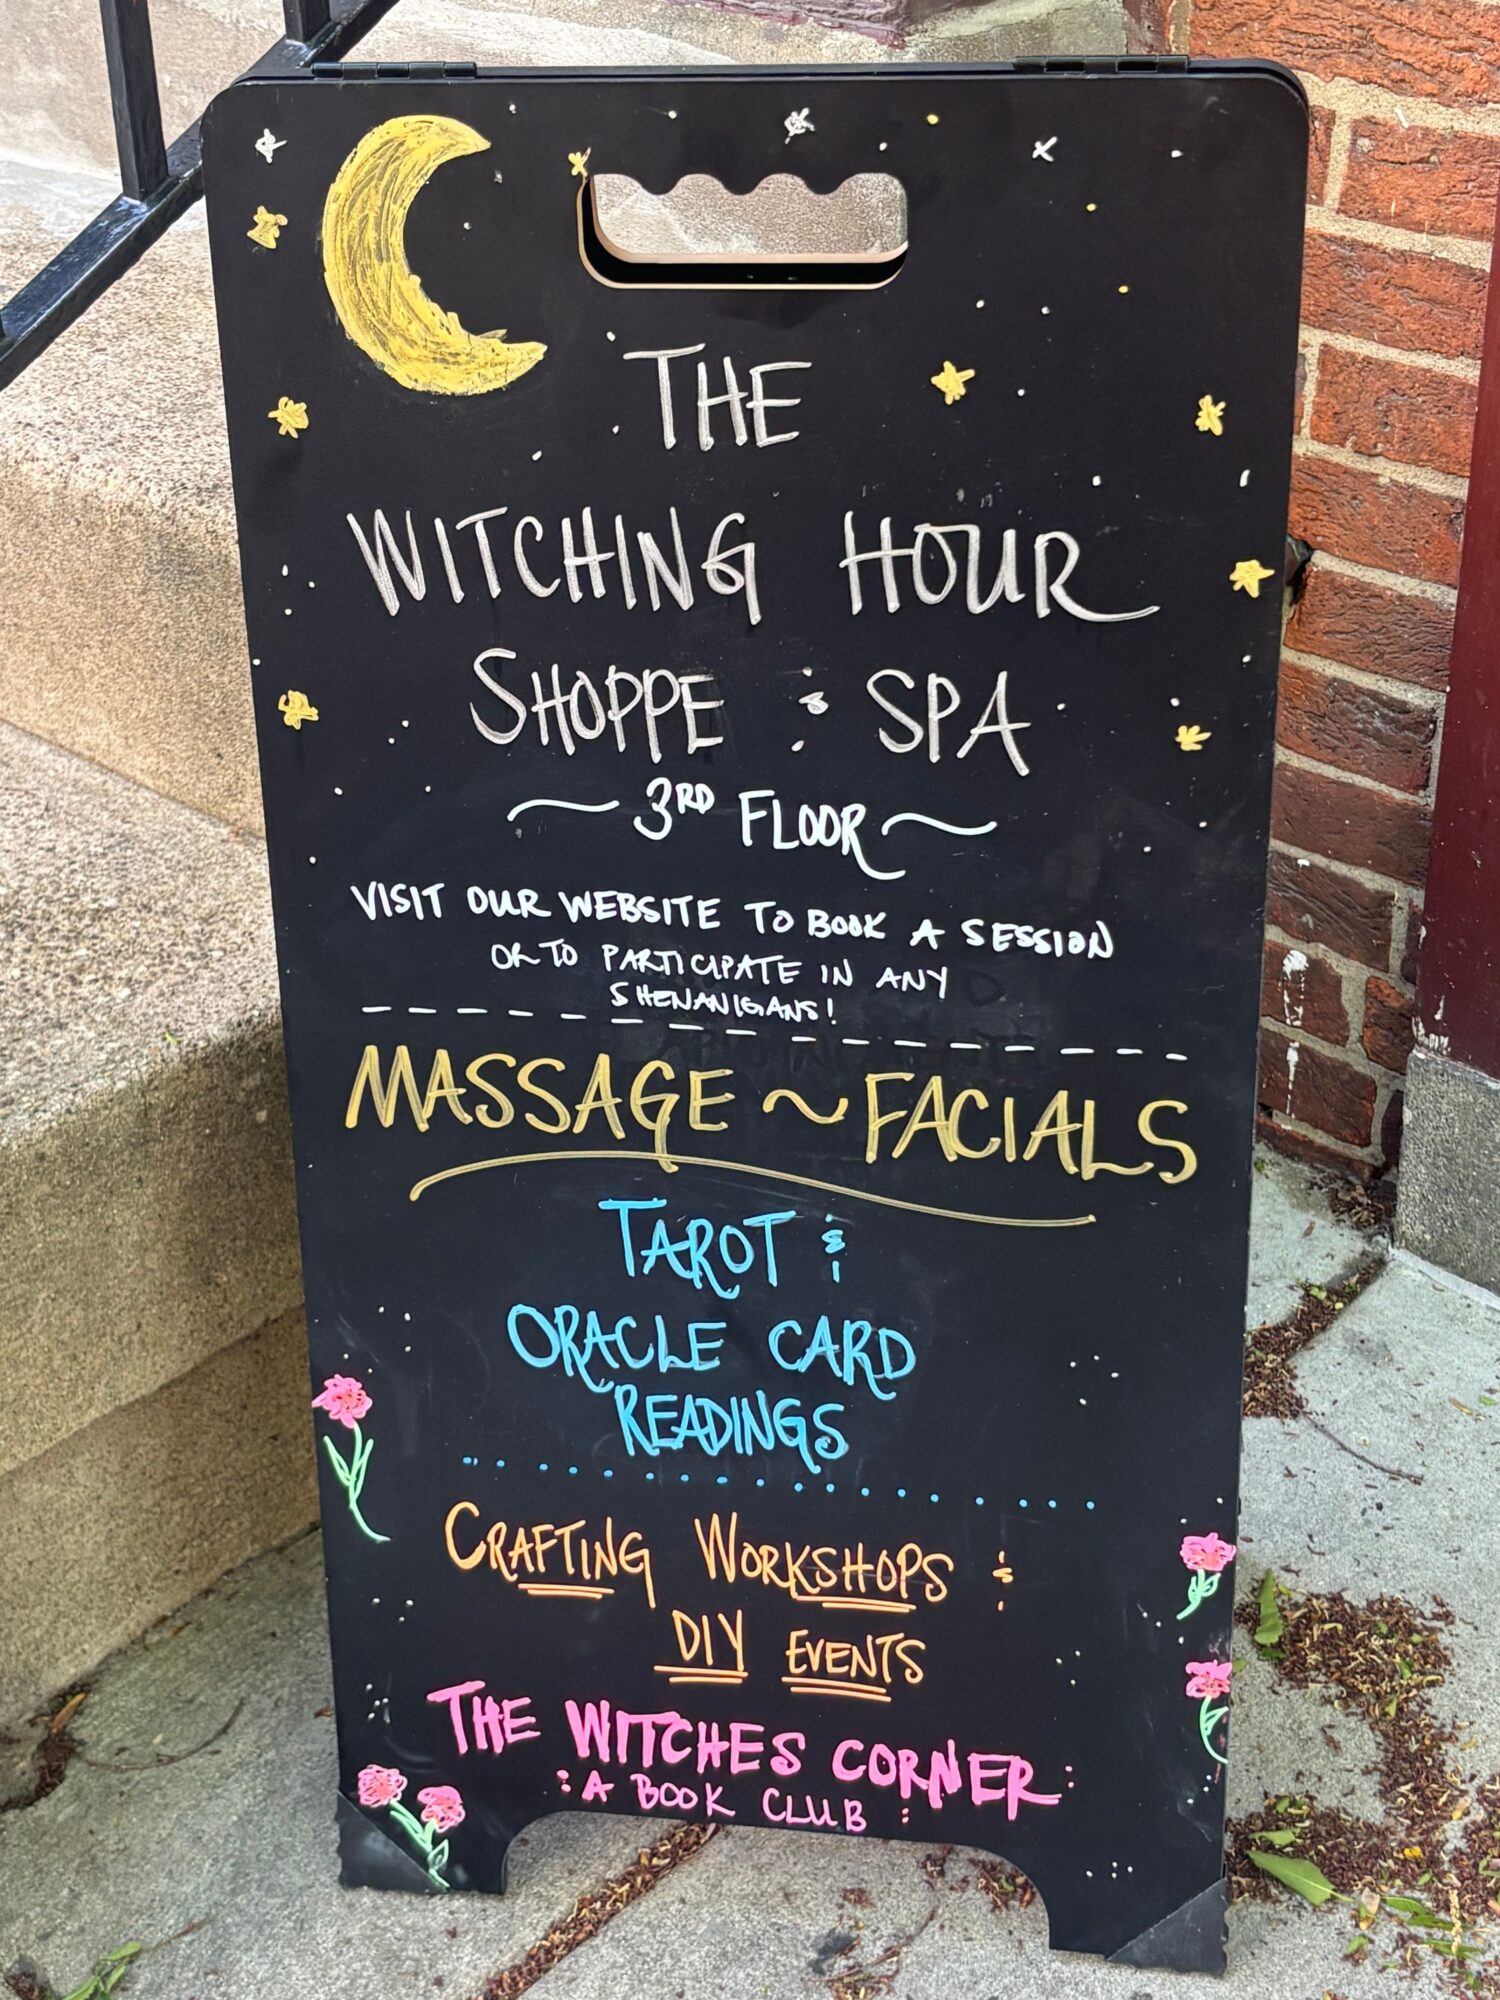 THE
WITCHING HOUR
SHOPPE & SPA
~ 3RD FLOOR ~
VISIT OUR WEBSITE TO BOOK A SESSION
OR TO PARTICIPATE IN ANY
SHENANIGANS!
MASSAGE ~ FACIALS
TAROT &
ORACLE CARD
READINGS
CRAFTING WORKSHOPS &
DIY EVENTS
THE WITCHES CORNER
: A BOOK CLUB :